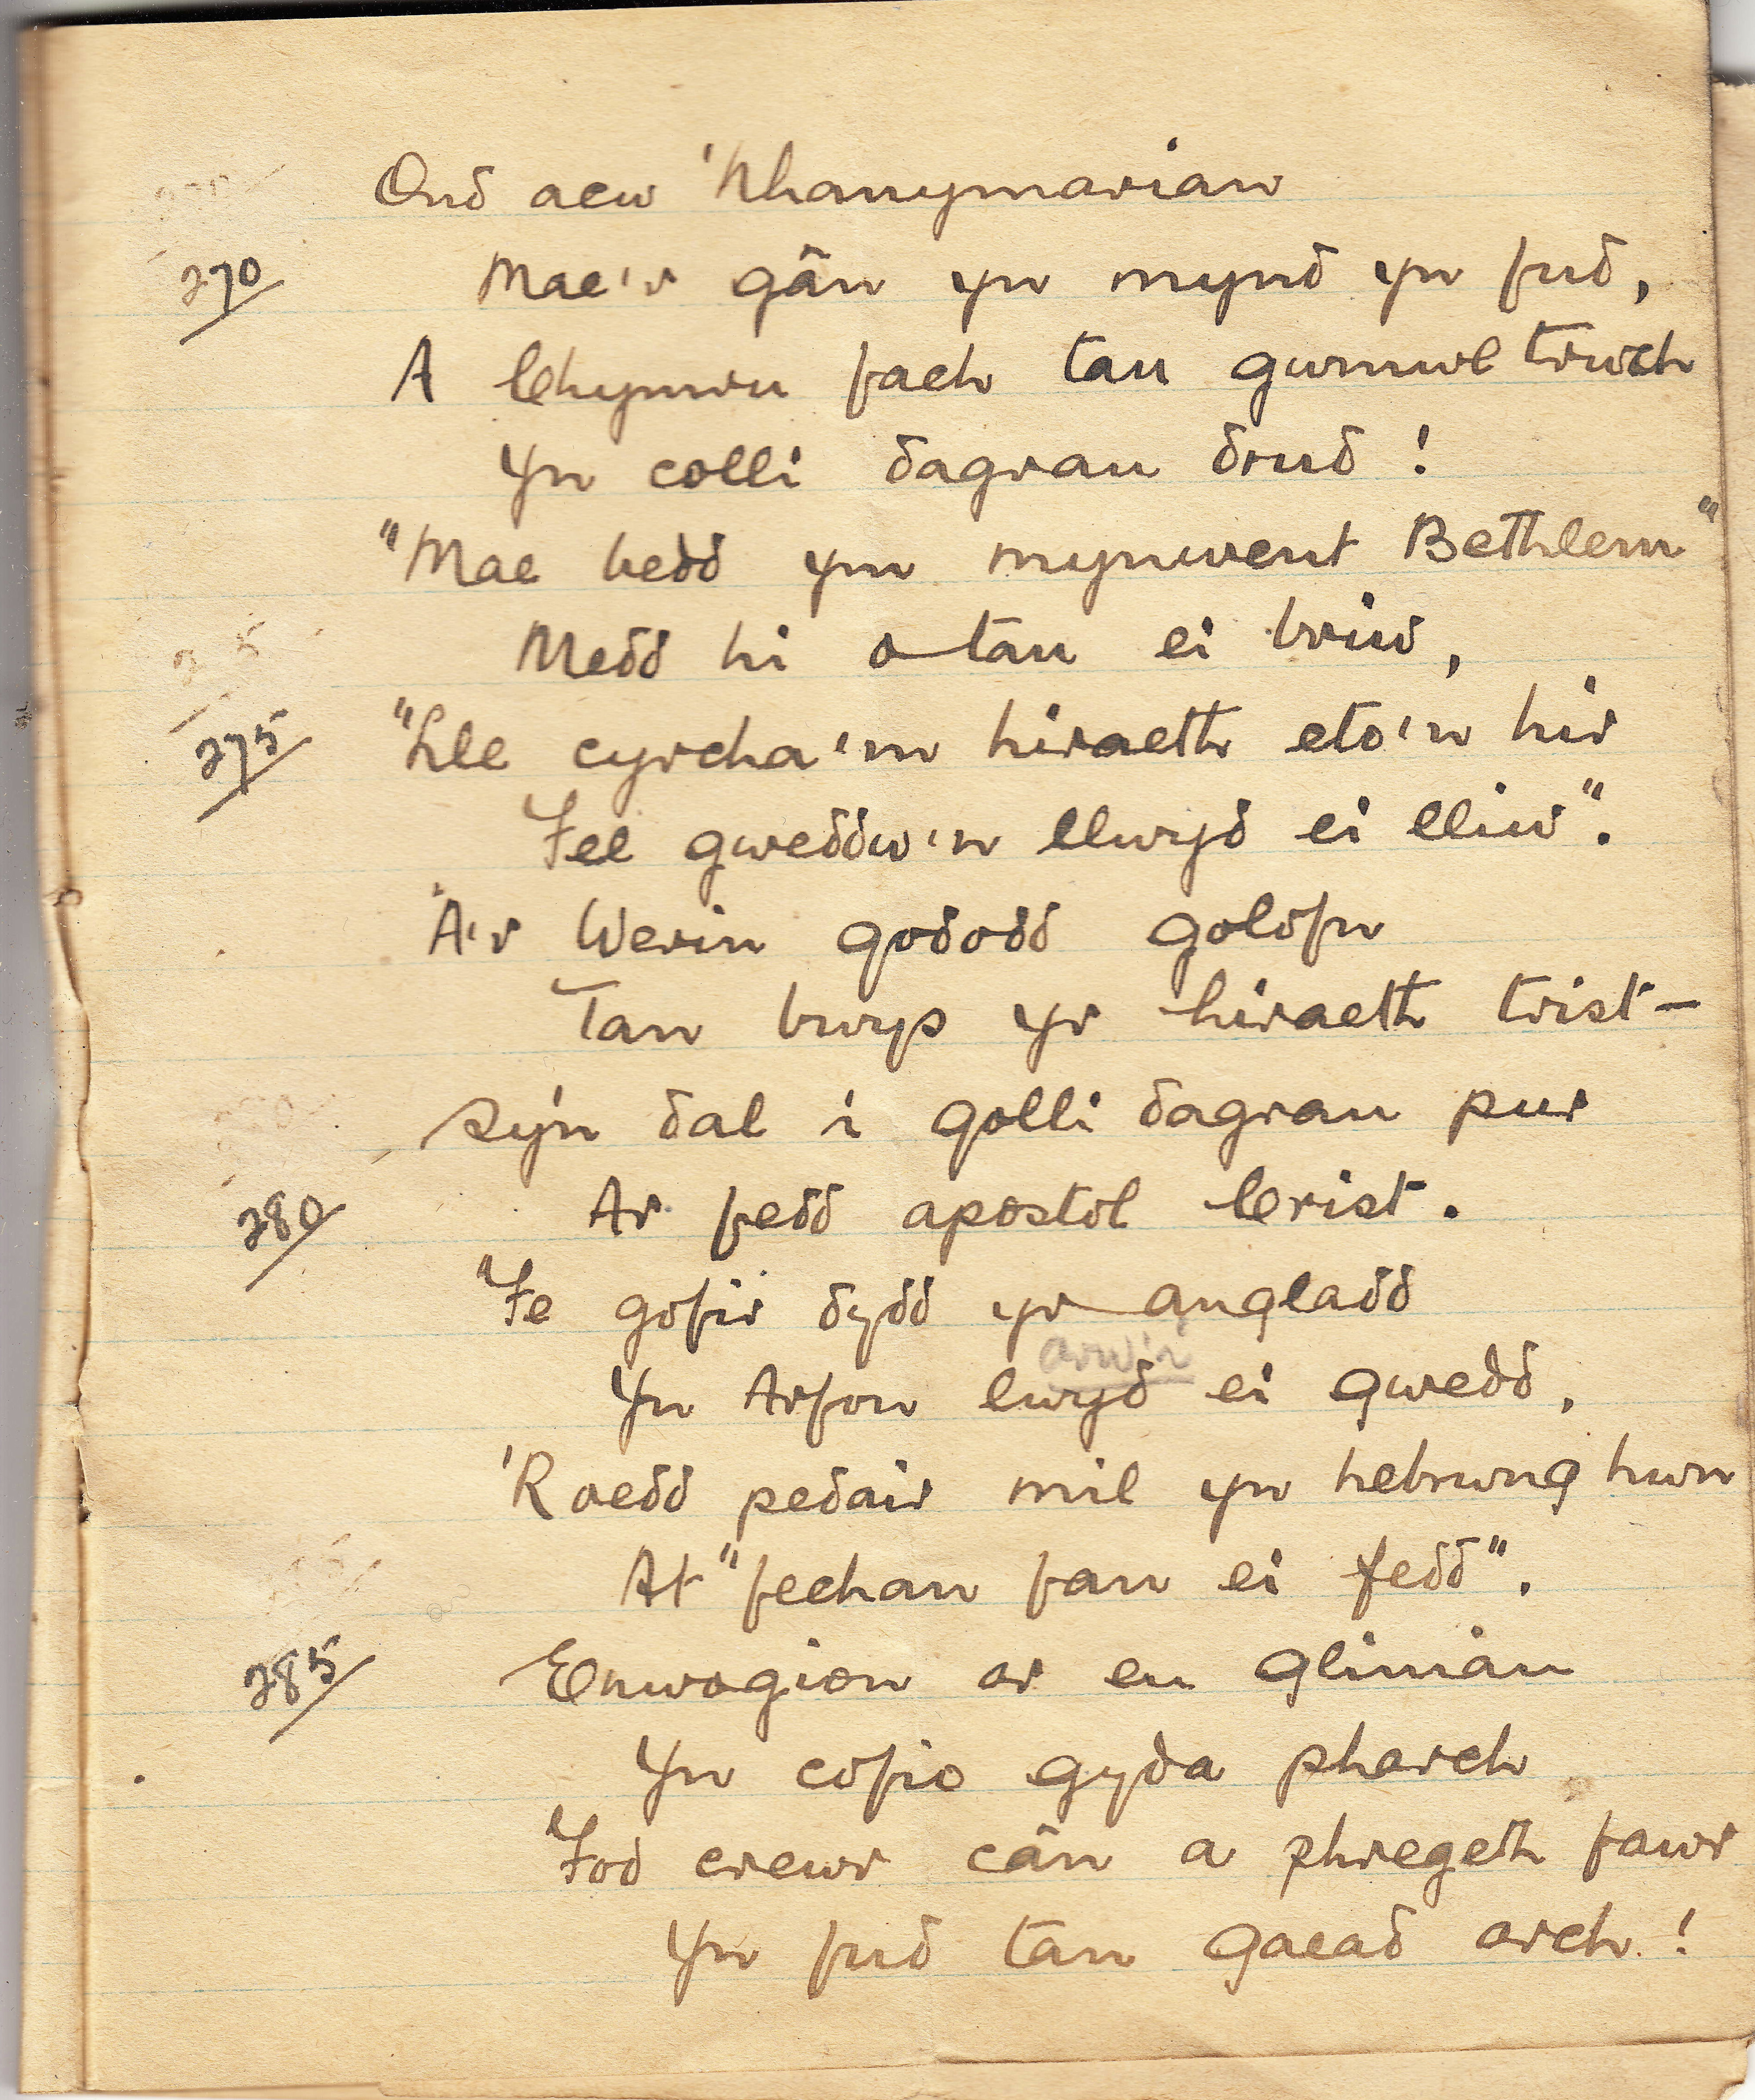 Ond aew 'Nhanymarian
270 Mae'r gân yn mynd yn fud,
A Chymru fach tan gwmwl trwch
Yn colli dagrau drud!
"Mae bedd ym mynwent Bethlem"
Medd hi o tan ei briw,
275 "Lle cyrcha'm hiraeth eto'n hir
Fel gweddw'n llwyd ei lliw".
A'r Werin gododd golofn
Tan bwys yr hiraeth trist—
Sy'n dal i golli dagrau pur
280 Ar fedd apostol Crist.
Fe gofir dydd yr angladd
arw'i
Yn Arfon lwyd ei gwedd,
'Roedd pedair mil yn hebrwng hwn
At "fechan fan ei fedd".
285 Enwogion ar eu gliniau
Yn cofio gyda pharch
Fod crewr cân a phregeth fawr
Yn fud tan gaead arch!